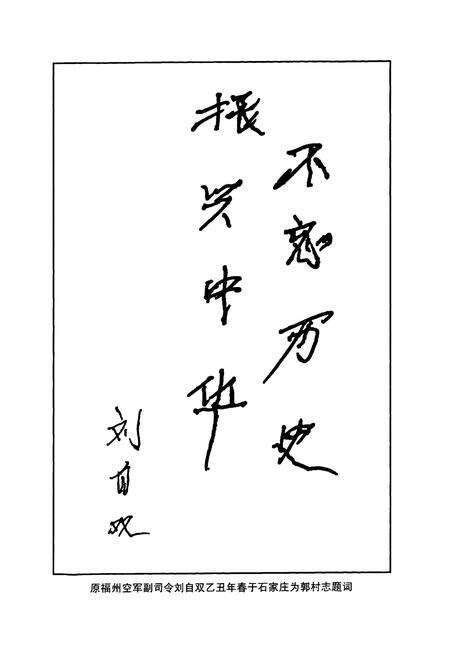 不忘历史
振兴中华
刘自双
原福州空军副司令刘自双乙丑年春于石家庄为郭村志题词